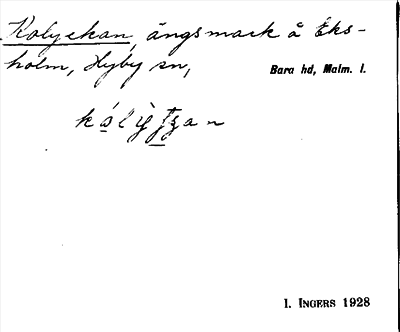 Kolyckan, ängsmark å Eks-
holm, Hyby sn,
Bara hd, Malm. l.
I. INGERS 1928